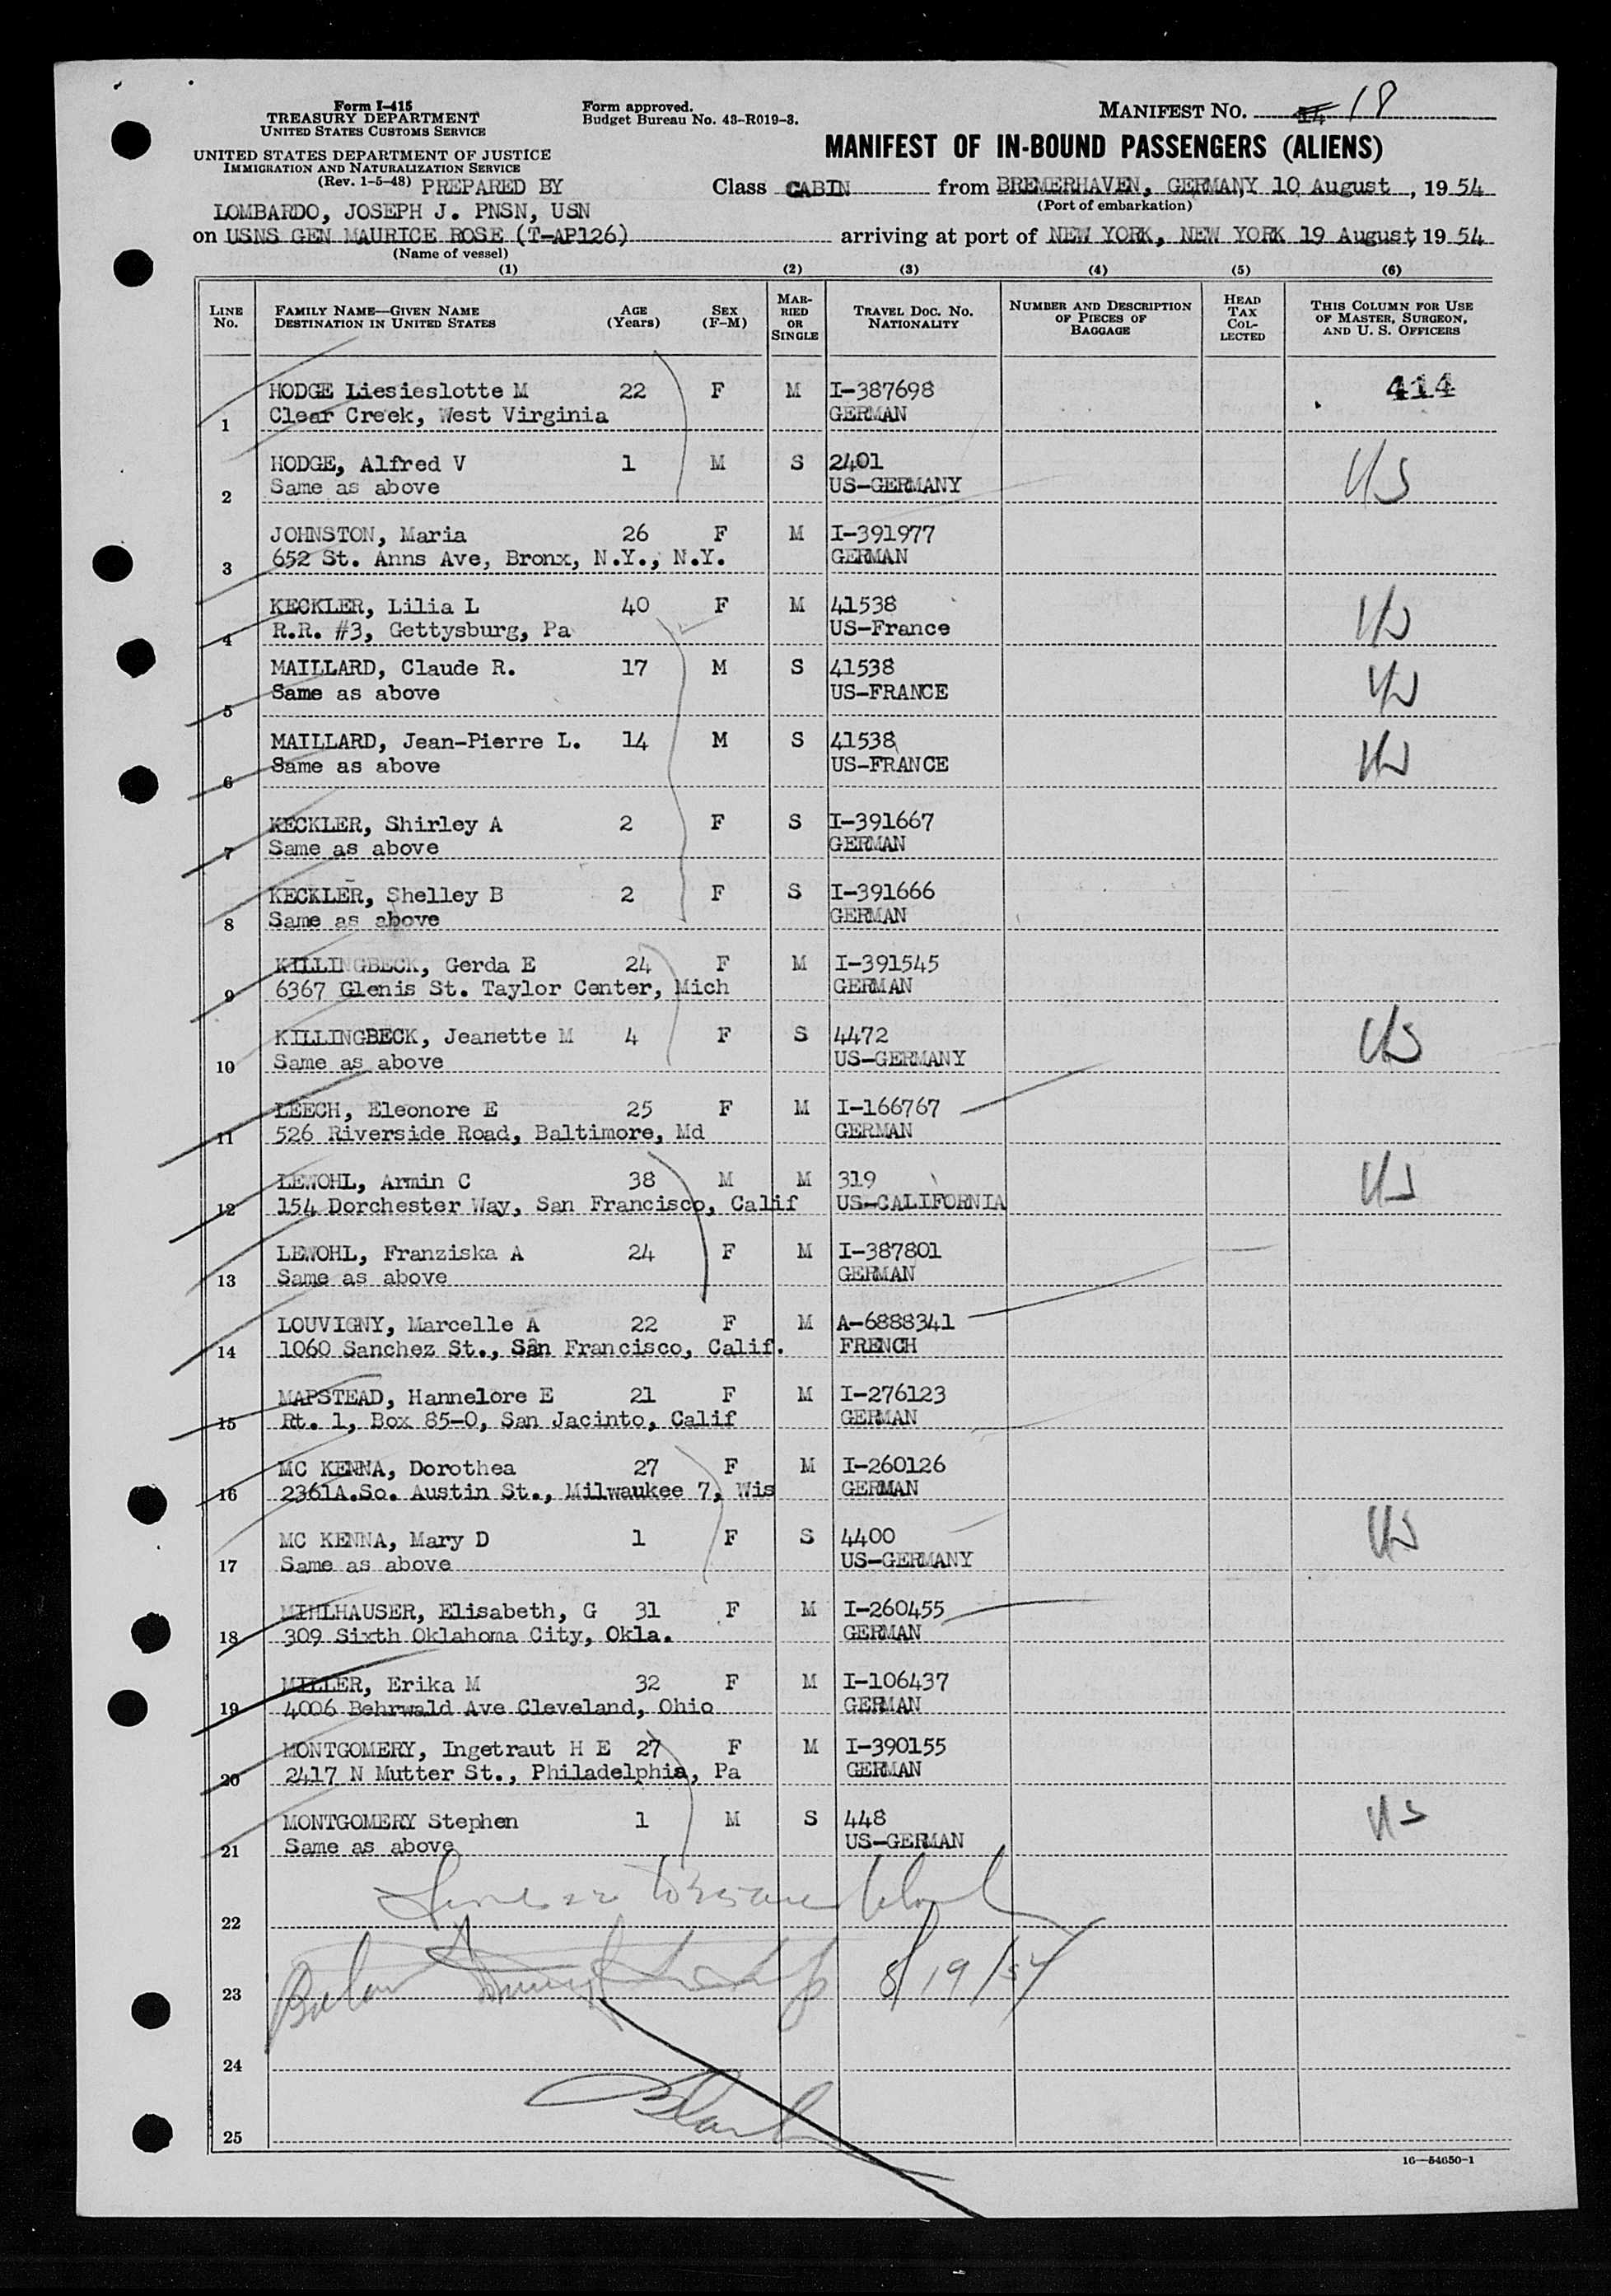 Form I-415
TREASURY DEPARTMENT
UNITED STATES CUSTOMS SERVICE
UNITED STATES DEPARTMENT OF JUSTICE
IMMIGRATION AND NATURALIZATION SERVICE
(Rev. 1-5-48) PREPARED BY
LOMBARDO, JOSEPH J. PNSN, USN
Form approved.
Budget Bureau No. 43-R019-3.
MANIFEST NO. 18
MANIFEST OF IN-BOUND PASSENGERS (ALIENS)
Class CABIN from BREMERHAVEN, GERMANY 10 August, 1954
(Port of embarkation)
on USNS GEN MAURICE ROSE (T-AP126) arriving at port of NEW YORK, NEW YORK 19 August, 1954
(Name of vessel)
(1) (2) (3) (4) (5) (6)
LINE No. FAMILY NAME—GIVEN NAME DESTINATION IN UNITED STATES AGE (Years) SEX (F-M) MARRIED OR SINGLE TRAVEL DOC. NO. NATIONALITY NUMBER AND DESCRIPTION OF PIECES OF BAGGAGE HEAD TAX COLLECTED THIS COLUMN FOR USE OF MASTER, SURGEON, AND U. S. OFFICERS
HODGE Liesieslotte M 22 F M I-387698 414
1 Clear Creek, West Virginia GERMAN
HODGE, Alfred V 1 M S 2401 US
2 Same as above US-GERMANY
JOHNSTON, Maria 26 F M I-391977
3 652 St. Anns Ave, Bronx, N.Y., N.Y. GERMAN
KECKLER, Lilia L 40 F M 41538 US
4 R.R. #3, Gettysburg, Pa US-France
MAILLARD, Claude R. 17 M S 41538 US
5 Same as above US-FRANCE
MAILLARD, Jean-Pierre L. 14 M S 41538 US
6 Same as above US-FRANCE
KECKLER, Shirley A 2 F S I-391667
7 Same as above GERMAN
KECKLER, Shelley B 2 F S I-391666
8 Same as above GERMAN
KILLINGBECK, Gerda E 24 F M I-391545
9 6367 Glenis St. Taylor Center, Mich GERMAN
KILLINGBECK, Jeanette M 4 F S 4472 US
10 Same as above US-GERMANY
LEECH, Eleonore E 25 F M I-166767
11 526 Riverside Road, Baltimore, Md GERMAN
LEWOHL, Armin C 38 M M 319 US
12 154 Dorchester Way, San Francisco, Calif US-CALIFORNIA
LEWOHL, Franziska A 24 F M I-387801
13 Same as above GERMAN
LOUVIGNY, Marcelle A 22 F M A-6888341
14 1060 Sanchez St., San Francisco, Calif. FRENCH
MAPSTEAD, Hannelore E 21 F M I-276123
15 Rt. 1, Box 85-O, San Jacinto, Calif GERMAN
MC KENNA, Dorothea 27 F M I-260126
16 2361A.So. Austin St., Milwaukee 7, Wis GERMAN
MC KENNA, Mary D 1 F S 4400 US
17 Same as above US-GERMANY
MIHLHAUSER, Elisabeth, G 31 F M I-260455
18 309 Sixth Oklahoma City, Okla. GERMAN
MILLER, Erika M 32 F M I-106437
19 4006 Behrwald Ave Cleveland, Ohio GERMAN
MONTGOMERY, Ingetraut H E 27 F M I-390155
20 2417 N Mutter St., Philadelphia, Pa GERMAN
MONTGOMERY Stephen 1 M S 448 US
21 Same as above US-GERMAN
22
23 8/19/54
24
25
16—54650-1